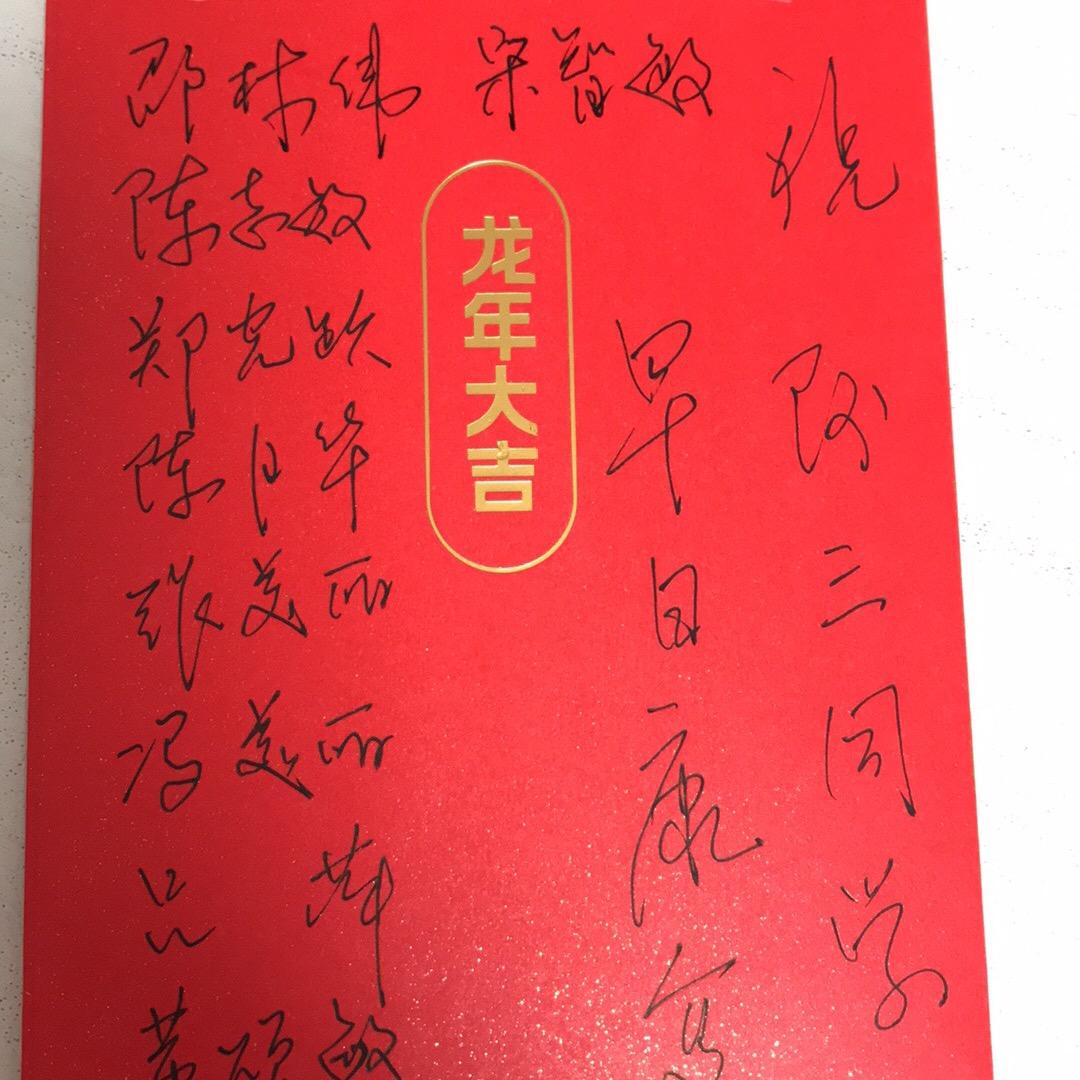 祝阿三同学
早日康复
龙年大吉
宋智敏
邵林伟
陈志敏
郑光跃
陈月华
张美丽
冯美丽
吕萍
黄颐敏